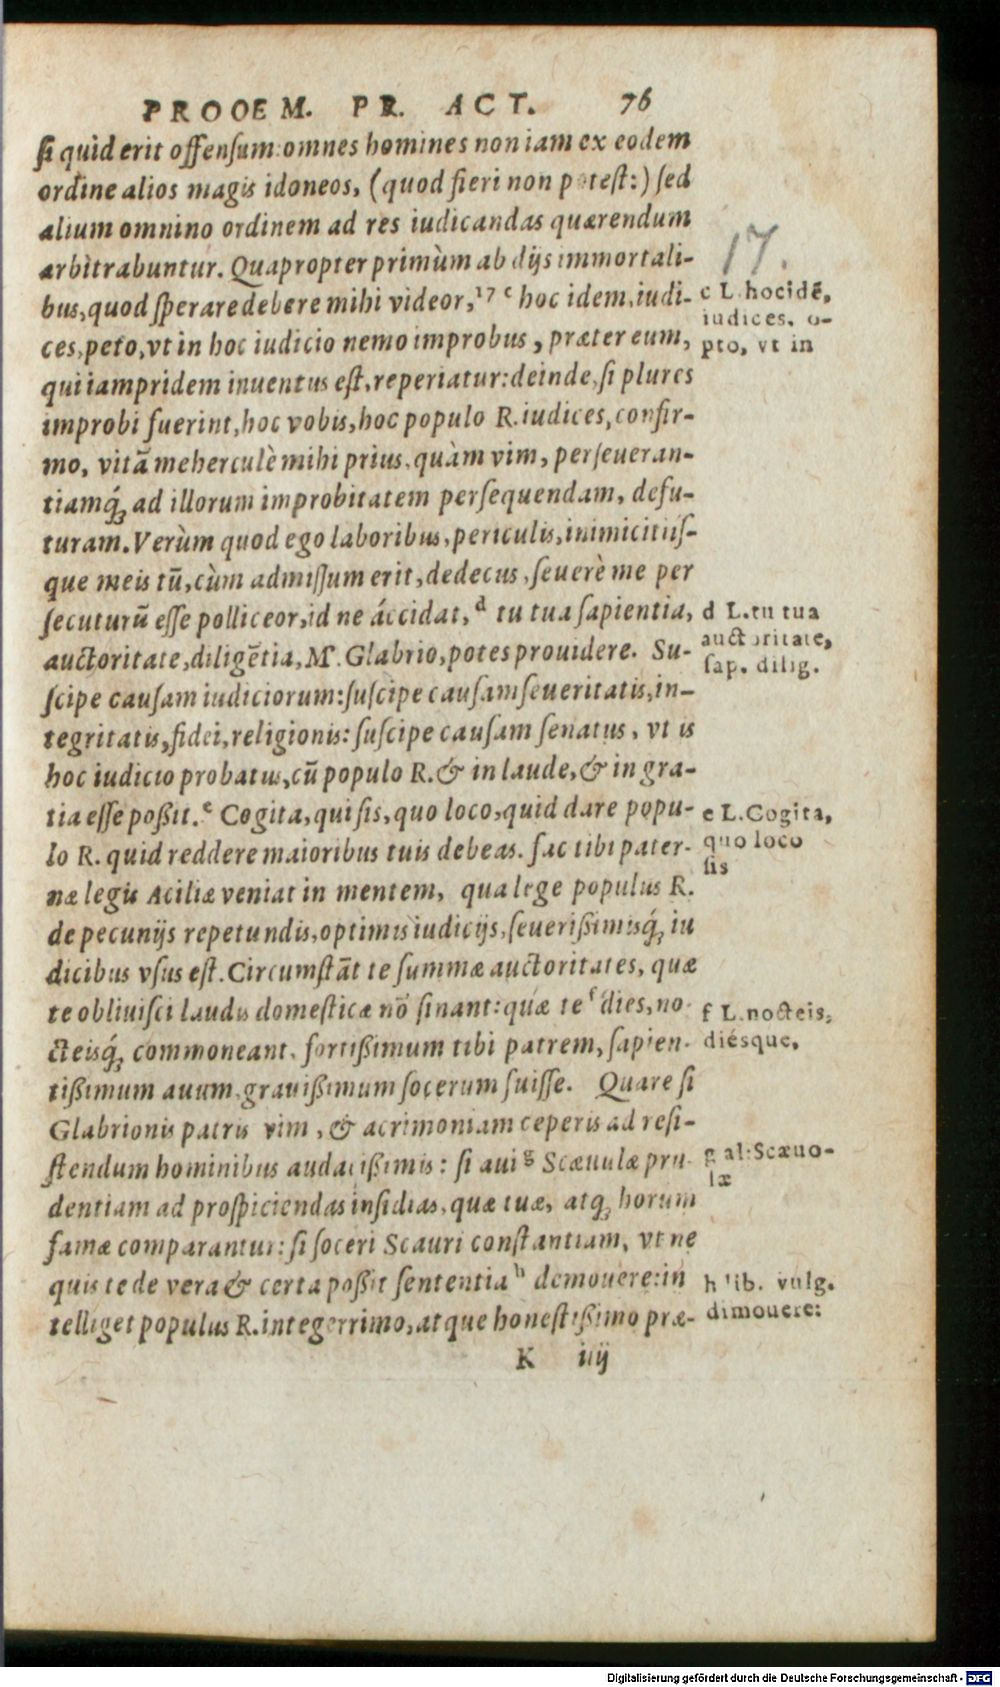 PROOEM. PR. ACT. 76
si quid erit offensum: omnes homines non iam ex eodem
ordine alios magis idoneos, (quod fieri non potest:) sed
alium omnino ordinem ad res iudicandas quærendum
arbitrabuntur. Quapropter primùm ab dijs immortali-
bus, quod sperare debere mihi videor,¹⁷ ᶜ hoc idem, iudi-
ces, peto, vt in hoc iudicio nemo improbus, præter eum,
qui iampridem inuentus est, reperiatur: deinde, si plures
improbi fuerint, hoc vobis, hoc populo R. iudices, confir-
mo, vitã meherculè mihi prius, quàm vim, perseueran-
tiamq́ꝫ ad illorum improbitatem persequendam, defu-
turam. Verùm quod ego laboribus, periculis, inimicitiis-
que meis tũ, cùm admissum erit, dedecus, seuerè me per
secuturũ esse polliceor, id ne áccidat, ᵈ tu tua sapientia,
auctoritate, diligẽtia, M'. Glabrio, potes prouidere. Su-
scipe causam iudiciorum: suscipe causam seueritatis, in-
tegritatis, fidei, religionis: suscipe causam senatus, vt is
hoc iudicio probatus, cũ populo R. & in laude, & in gra-
tia esse poßit. ᵉ Cogita, qui sis, quo loco, quid dare popu-
lo R. quid reddere maioribus tuis debeas. fac tibi pater-
næ legis Aciliæ veniat in mentem, qua lege populus R.
de pecunijs repetundis, optimis iudicijs, seuerißimisq́ꝫ iu
dicibus vsus est. Circumstãt te summæ auctoritates, quæ
te obliuisci laudis domesticæ nõ sinant: quæ te ᶠ dies, no-
cteisq́ꝫ commoneant, fortißimum tibi patrem, sapien-
tißimum auum, grauißimum socerum fuisse. Quare si
Glabrionis patris vim, & acrimoniam ceperis ad resi-
stendum hominibus audacißimis: si aui ᵍ Scæuulæ pru-
dentiam ad prospiciendas insidias, quæ tuæ, atqꝫ horum
famæ comparantur: si soceri Scauri constantiam, vt ne
quis te de vera & certa poßit sententia ʰ demouere: in
telliget populus R. integerrimo, atque honestißimo præ-
K iiij
17.
c L. hoc idẽ,
iudices, o-
pto, vt in
d L. tu tua
auctoritate,
sap. dilig.
e L. Cogita,
quo loco
sis
f L. nocteis,
diésque,
g al: Scæuo-
læ
h lib. vulg.
dimouere:
Digitalisierung gefördert durch die Deutsche Forschungsgemeinschaft - DFG